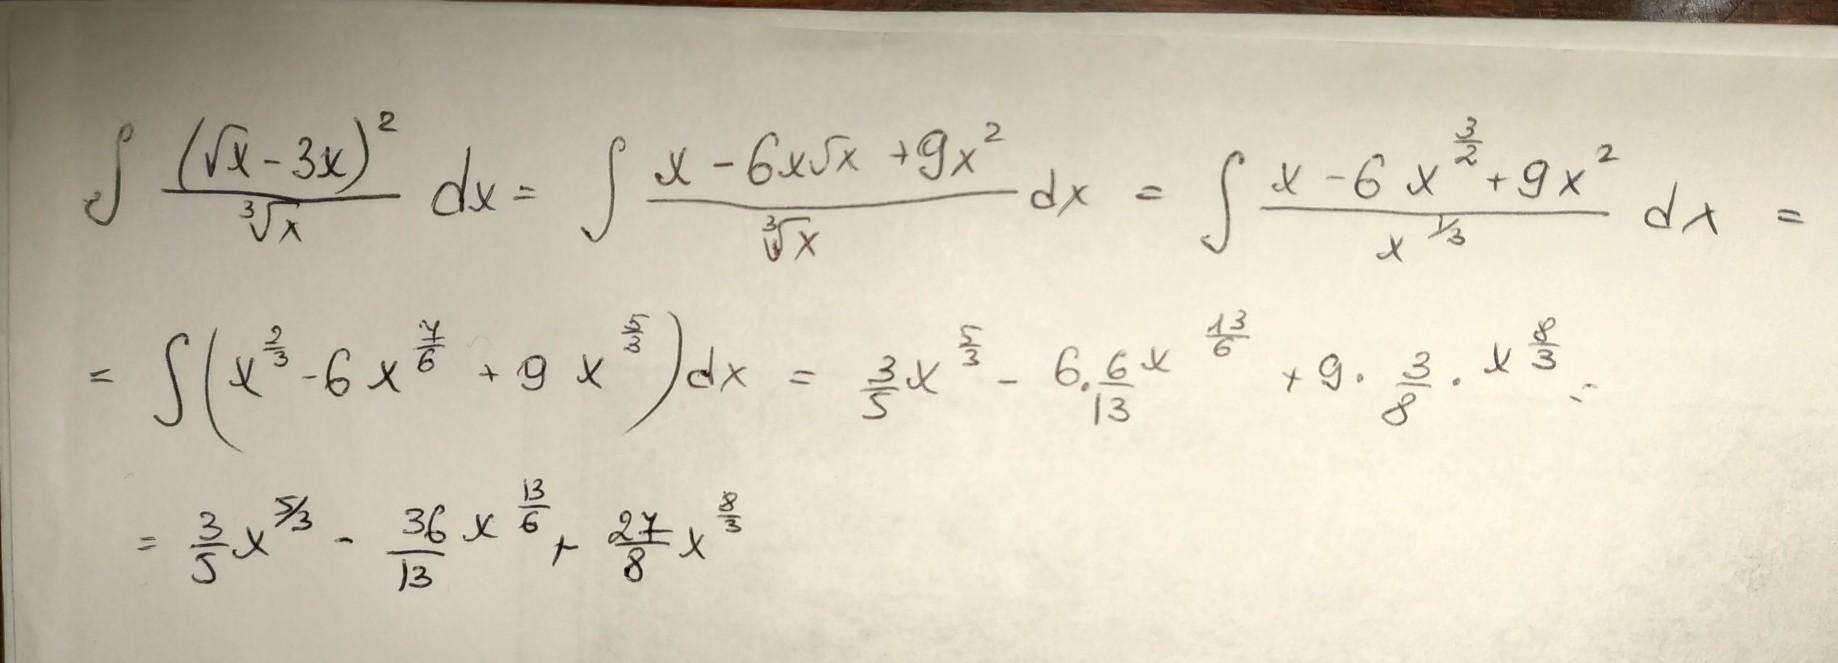 ∫ (√x - 3x)² / ∛x dx = ∫ (x - 6x√x + 9x²) / ∛x dx = ∫ (x - 6x^(3/2) + 9x²) / x^(1/3) dx =
= ∫ (x^(2/3) - 6x^(7/6) + 9x^(5/3)) dx = 3/5 x^(5/3) - 6 · 6/13 x^(13/6) + 9 · 3/8 · x^(8/3) =
= 3/5 x^(5/3) - 36/13 x^(13/6) + 27/8 x^(8/3)